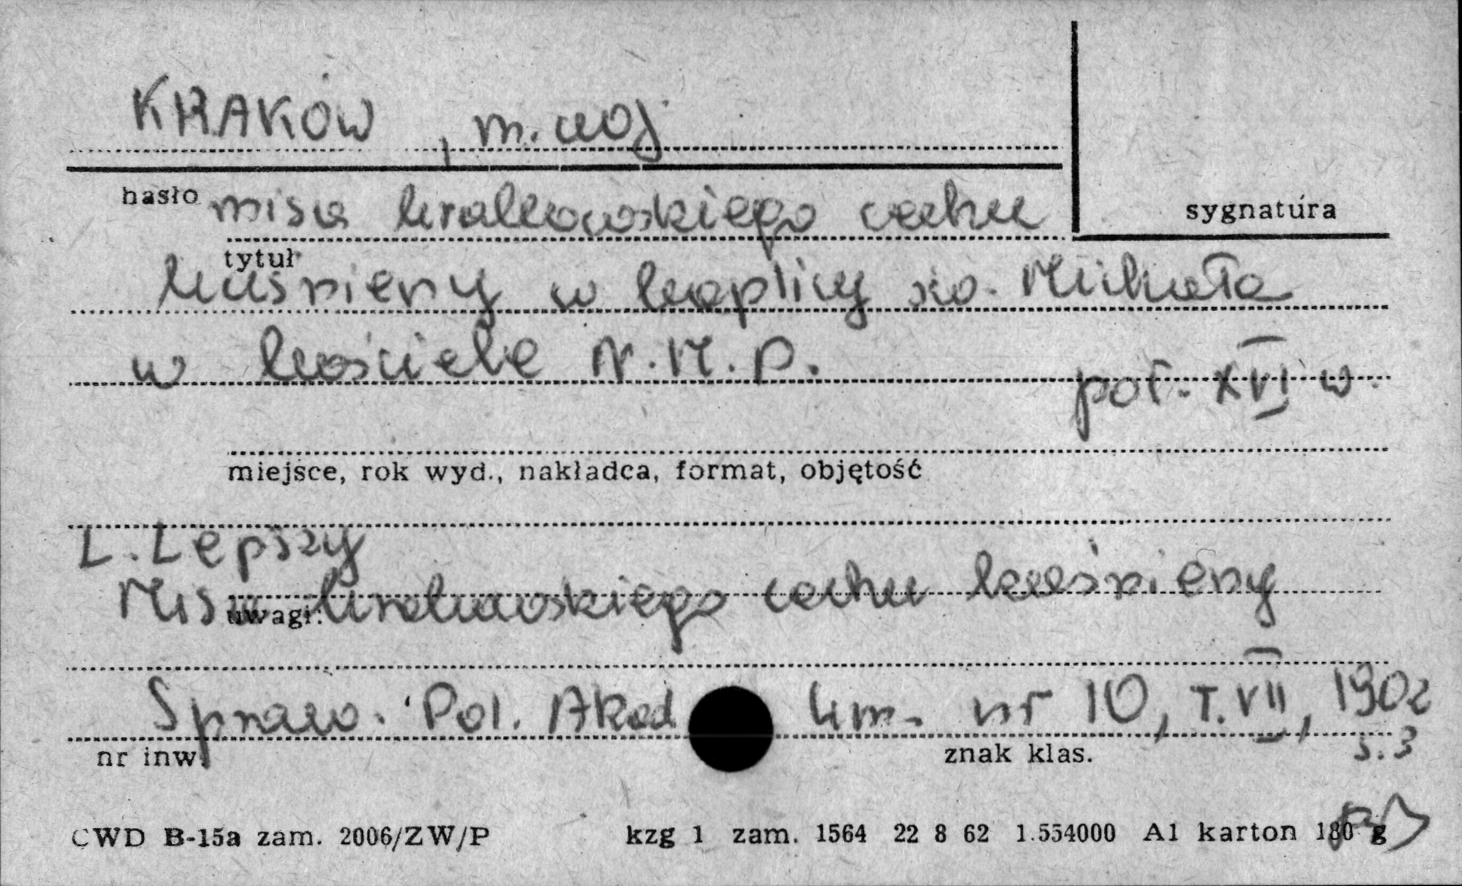 KRAKÓW, m. woj.
hasło misa krakowskiego cechu
sygnatura
tytuł
kuśnierzy w kaplicy św. Michała
w kościele N.M.P.
poł. XVI w.
miejsce, rok wyd., nakładca, format, objętość
L. Lepszy
Misa krakowskiego cechu kuśnierzy
uwagi:
Spraw. Pol. Akad. Um. nr 10, T. VII, 1902
s. 3
nr inw.
znak klas.
CWD B-15a zam. 2006/ZW/P kzg 1 zam. 1564 22 8 62 1.554000 A1 karton 180 g